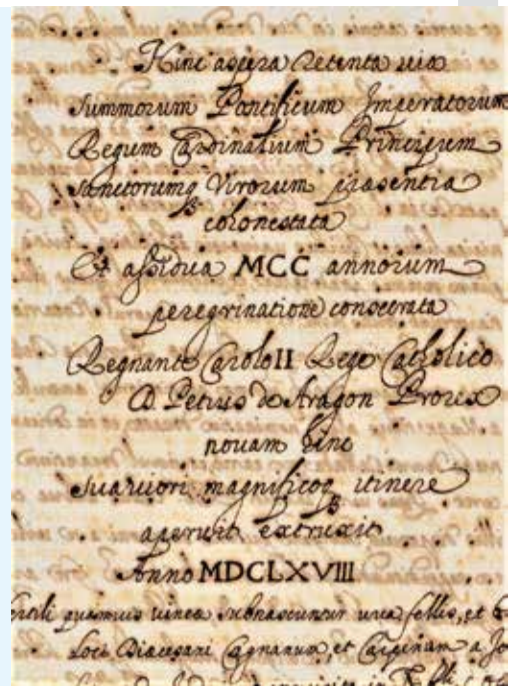 Hinc aspera retenta via
summorum Pontificum Imperatorum
Regum Cardinalium Principum
sanctorumq Virorum praesentia
cohonestata
Et assidua MCC annorum
peregrinatione consecrata
Regnante Carolo II Rege Catholico
D. Petrus de Aragon Prorex
novam hinc
suaviori magnificoq itinere
aperuit extruxit
Anno MDCLXVIII
quamvis vinea subnascuntur uva fellis, et
Loci Diaecesani Cagnanum, et Carpinum a